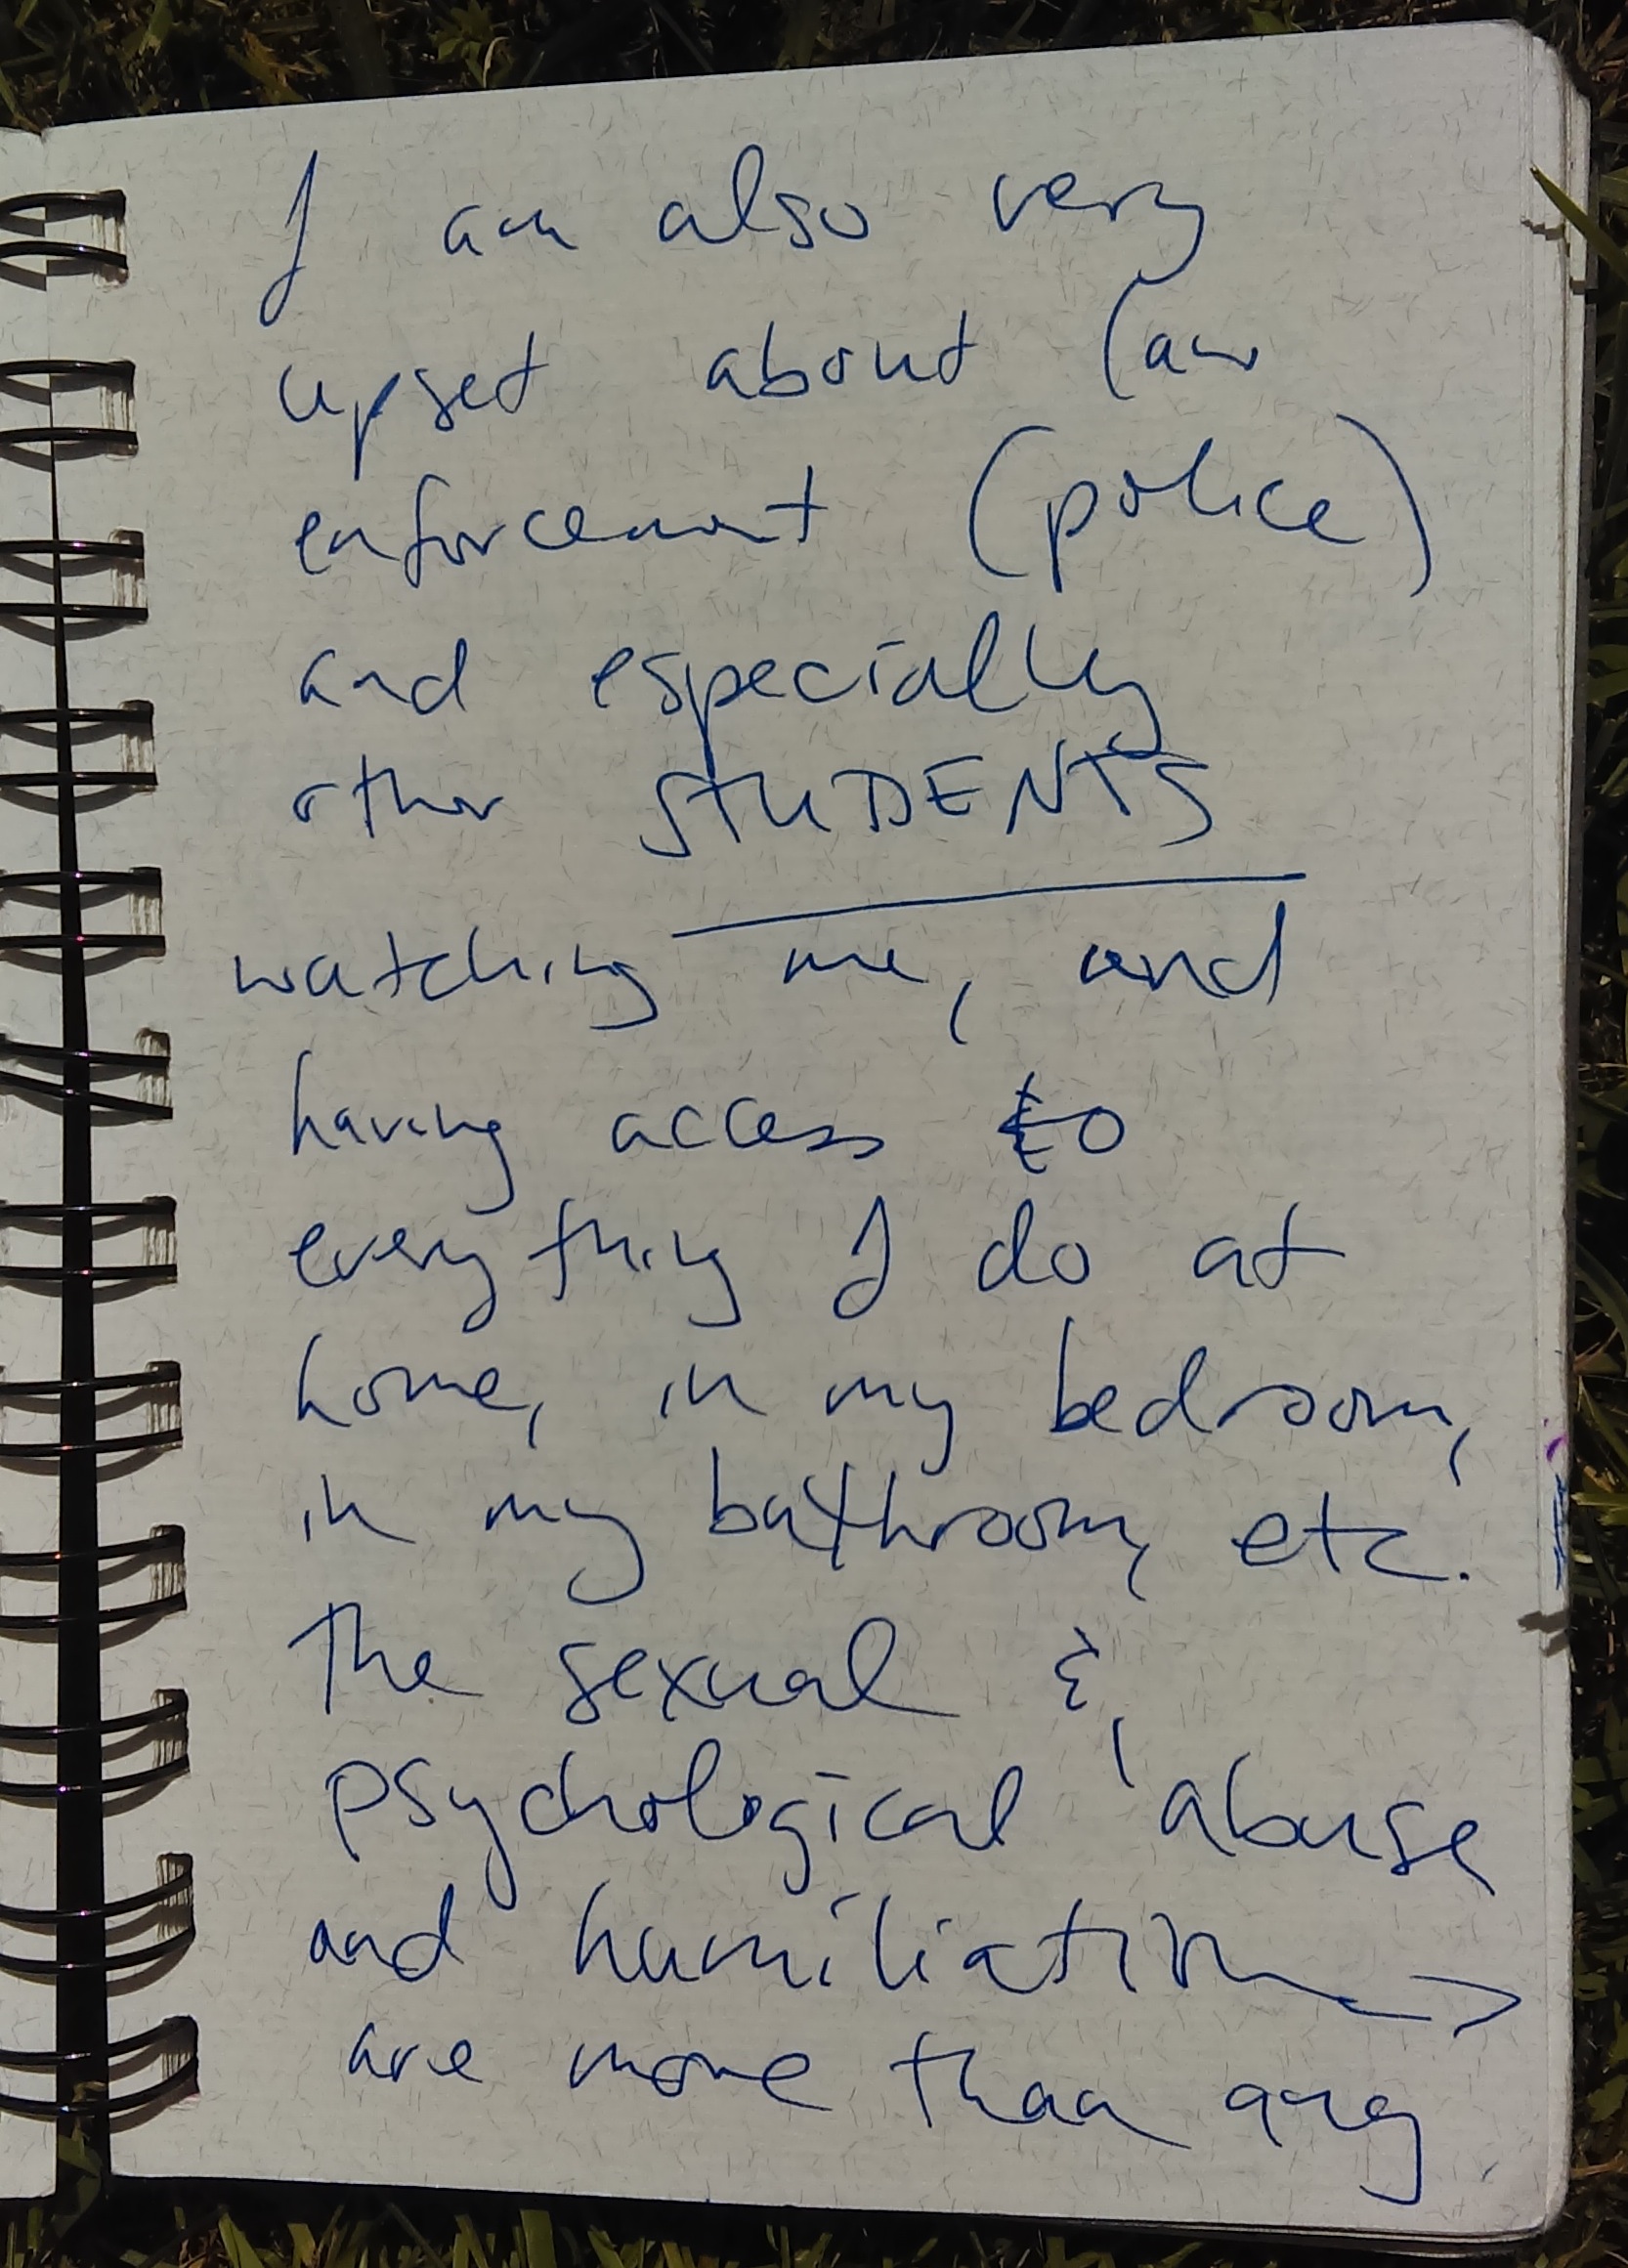 I am also very
upset about law
enforcement (police)
and especially
other STUDENTS
watching me, and
having access to
everything I do at
home, in my bedroom,
in my bathroom, etc.
The sexual &
psychological abuse
and humiliation
are more than any